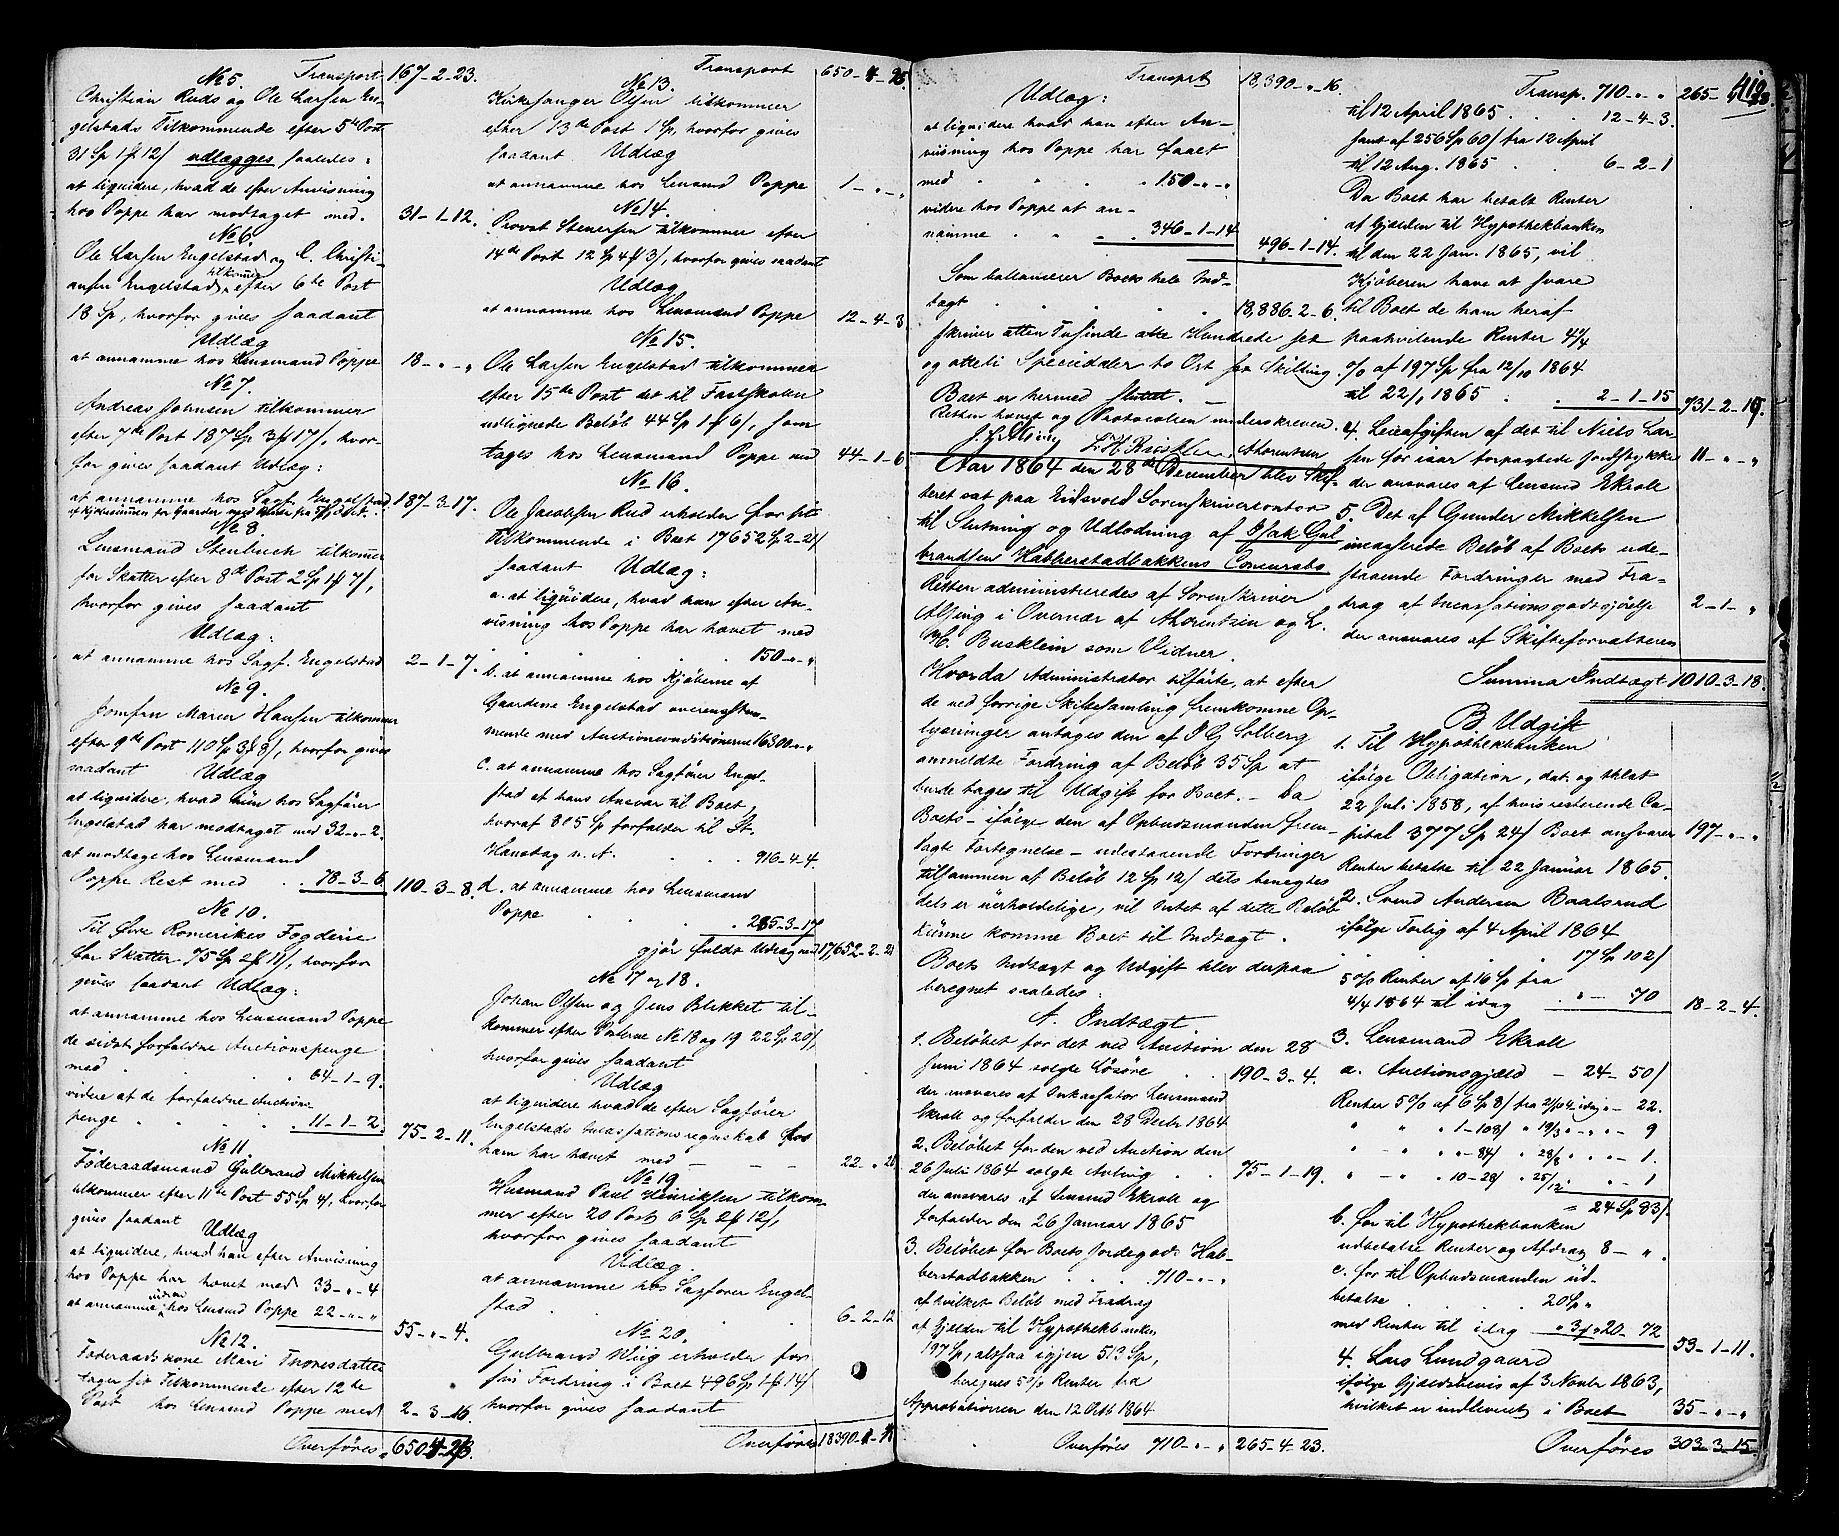 Transport 167-2-23.
No 5.
Christian Ruds og Ole Larsen En-
gelstads Tilkommende efter 5te Post
31 Sp 1 ℔ 12/ udlægges saaledes:
at liquidere, hvad de efter Anvisning
hos Poppe har modtaget med. 31-1-12.
No 6.
Ole Larsen Engelstad og C. Christi-
ansen Engelstad tilkommer efter 6te Post
18 Sp, hvorfor gives saadant
Udlæg
at annamme hos Lensmand Poppe 18-"-"
No 7.
Andreas Johnsen tilkommer
efter 7de Post 187 Sp 3 ℔ 17/, hvor-
for gives saadant Udlæg:
at annamme hos Sagf. Engelstad
af Kjøbesummen for Gaarden 187-3-17.
No 8
Lensmand Stenbuch tilkommer
for Skatter efter 8de Post 2 Sp 1 ℔ 7/,
hvorfor gives saadant
Udlæg:
at annamme hos Sagf. Engelstad 2-1-7.
No 9.
Jomfru Maren Hansen tilkommer
efter 9de Post 110 Sp 3 ℔ 8/, hvorfor gives
saadant Udlæg
at liquidere, hvad hun hos Sagfører
Engelstad har modtaget med 32-"-2.
at modtage hos Lensmand
Poppe Rest med . . 78-3-6 110-3-8.
No 10.
Til Øvre Romerikes Fogderie
for Skatter 75 Sp 2 ℔ 11/, hvorfor
gives saadant Udlæg:
at annamme hos Lensmand Poppe
de sidst forfaldne Auctionspenge
med . . . 64-1-9.
videre at de forfaldne Auctions-
penge . . . 11-1-2. 75-2-11.
No 11
Føderaadsmand Gulbrand Mikkelsen
tilkommer efter 11te Post 55 Sp 4/, hvorfor
gives saadant Udlæg
at liquidere, hvad han efter Anvisning
hos Poppe har hævet med 33-"-4
at annamme videre hos Lensmd Poppe 22-"-" 55-"-4.
No 12.
Føderaadskone Mari Thoresdatter
tager sit Tilkommende efter 12te
Post hos Lensmd Poppe med 2-3-16.
Overføres 650-4-23.
Transport 650-4-25.
No 13.
Kirkesanger Olsen tilkommer
efter 13de Post 1 Sp, hvorfor gives
saadant Udlæg
at annamme hos Lensmd Poppe 1-"-"
No 14.
Provst Stenersen tilkommer efter
14de Post 12 Sp 4 ℔ 3/, hvorfor gives saadant
Udlæg
at annamme hos Lensmand Poppe 12-4-3
No 15.
Ole Larsen Engelstad tilkommer
efter 15de Post det til Fastskolen
udlignede Beløb 44 Sp 1 ℔ 6/, som
tages hos Lensmand Poppe med 44-1-6
No 16.
Ole Jacobsen Rud erholder for sit
Tilkommende i Boet 17652 Sp 2-21/
saadant Udlæg:
a. at liquidere, hvad han efter An-
visning hos Poppe har hævet med
. . . 150-"-"
b. at annamme hos Kjøberne af
Gaardene Engelstad overensstem-
mende med Auctionsconditionerne 16300-"-"
c. at annamme hos Sagfører Engel-
stad af hans Ansvar til Boet,
hvoraf 805 Sp forfalder til St.
Hansdag n. A. . . 916-4-4.
d. at annamme hos Lensmand
Poppe . . . 285-3-17
gjør fuldt Udlæg med 17,652-2-21
No 17 og 18.
Johan Olsen og Jens Blekket til-
kommer efter Posterne No 18 og 19 22 Sp 20/,
hvorfor gives saadant
Udlæg
at liquidere hvad de efter Sagfører
Engelstads Incassationsregnskab hos
ham har hævet med - - - 22-"-20
No 19
Husmand Paul Henriksen tilkom-
mer efter 20 Post 6 Sp 2 ℔ 12/,
hvorfor gives saadant
Udlæg.
at annamme hos Sagfører Engel-
stad . . . 6-2-12
No 20.
Gulbrand Wiig erholder for
sin Fordring i Boet 496 Sp 1 ℔ 14/
hvorfor gives saadant
Overføres 18390-
Transport 18,390-"-16.
Udlæg:
at liquidere hvad han efter An-
visning hos Poppe har faaet
med . . . 150-"-"
videre hos Poppe at an-
namme . . . 346-1-14 496-1-14.
Som ballancerer Boets hele Ind-
tægt . . . 18,886-2-6.
skriver atten Tusinde otte Hundrede sex
og otteti Speciedaler to Ort sex Skilling.
Boet er hermed sluttet. —
Retten hævet og Protocollen underskreven.
L. H. Busklein Thorentzen
Aar 1864 den 28de December blev Skif-
teret sat paa Eidsvold Sorenskrivercontor
til Slutning og Udlodning af Isak Gul-
brandsen Habberstadbakkens Concursbo
Retten administreredes af Sorenskriver
Alsing i Overvær af Thorentzen og L.
H. Busklein som Vidner.
Hvorda Administrator tilførte, at efter
de ved forrige Skiftesamling fremkomne Op-
lysninger antages den af P G Solberg
anmeldte Fordring af Beløb 35 Sp at
burde tages til Udgift for Boet. — Da
Boets — ifølge den af Opbudsmanden frem-
lagte Fortegnelse — udestaaende Fordringer
tilsammen af Beløb 12 Sp 12/ dels benegtes
dels er uerholdelige, vil Intet af dette Beløb
kunne komme Boet til Indtægt.
Boets Indtægt og Udgift blev derpaa
beregnet saaledes:
A. Indtægt.
1. Beløbet for det ved Auction den 28
Juni 1864 solgte Løsøre . . 190-3-4.
der ansvares af Inkassator Lensmand
Ekroll og forfalder den 28 Decbr 1864
2. Beløbet for den ved Auction den
26 Juli 1864 solgte Avling . . 75-1-19.
der ansvares af Lensmd Ekroll og
forfalder den 26 Januar 1865
3. Beløbet for Boets Jordegods Hab-
berstadbakken . . . 710-"-"
af hvilket Beløb med Fradrag
af Gjelden til Hypothekbanken
197 Sp, altsaa igjen 513 Sp,
beregnes 5 % Renter fra
Approbationen den 12 Octb 1864
Overføres 710-"-" 265-4-23.
419.
Transp. 710-"-" 265-4-23.
til 12 April 1865 . . . 12-4-3.
samt af 256 Sp 60/ fra 12 April
til 12 Aug. 1865 . . 6-2-1
Da Boet har betalt Renter
af Gjælden til Hypothekbanken
til den 22 Jan. 1865, vil
Kjøberen have at svare
til Boet de ham heraf
paahvilende Renter 4¼
% af 197 Sp fra 12/10 1864
til 22/1 1865 . . 2-1-15 731-2-19.
4. Leieafgiften af det til Niels Lar-
sen for iaar forpagtede Jordstykke 11-"-"
der ansvares af Lensmd Ekroll
5. Det af Gunder Mikkelsen
incasserede Beløb af Boets ude-
staaende Fordringer med Fra-
drag af Incassationsgodtgjørelse 2-1-"
der ansvares af Skifteforvalteren
Summa Indtægt 1010-3-18.
B. Udgift
1. Til Hypothekbanken
ifølge Obligation, dat. og thlæst
22 Juli 1858, af hvis resterende Ca-
pital 377 Sp 24/ Boet ansvarer 197-"-"
Renter betalte til 22 Januar 1865.
2. Svend Andersen Baalsrud
ifølge Forlig af 4 April 1864
. . . 17 Sp 102/
5 % Renter af 16 Sp fra
4/4 1864 til idag . . "- 70 18-2-4.
3. Lensmand Ekroll
a. Auctionsgjæld - 24-50/
Renter 5 % af 6 Sp 8/ fra 2/10 64 idag "- 22.
" " " 1-108/ " 19/3 " - " - 9
" - " " "-84/ " 28/8 " " - 1.
" - " " 10-28/ " 25/12 " - 1
" 24 Sp 83/.
b. for til Hypothekbanken
udbetalte Renter og Afdrag 8-".
c. for til Opbudsmanden ud-
betalte . . . 20 Sp "
med Renter til idag " 3 ℔ " 20-72 53-1-11.
4. Lars Lundgaard
ifølge Gjældsbevis af 3 Novbr 1863,
hvilket er indleveret i Boet 35-"-"
Overføres 303-3-15.